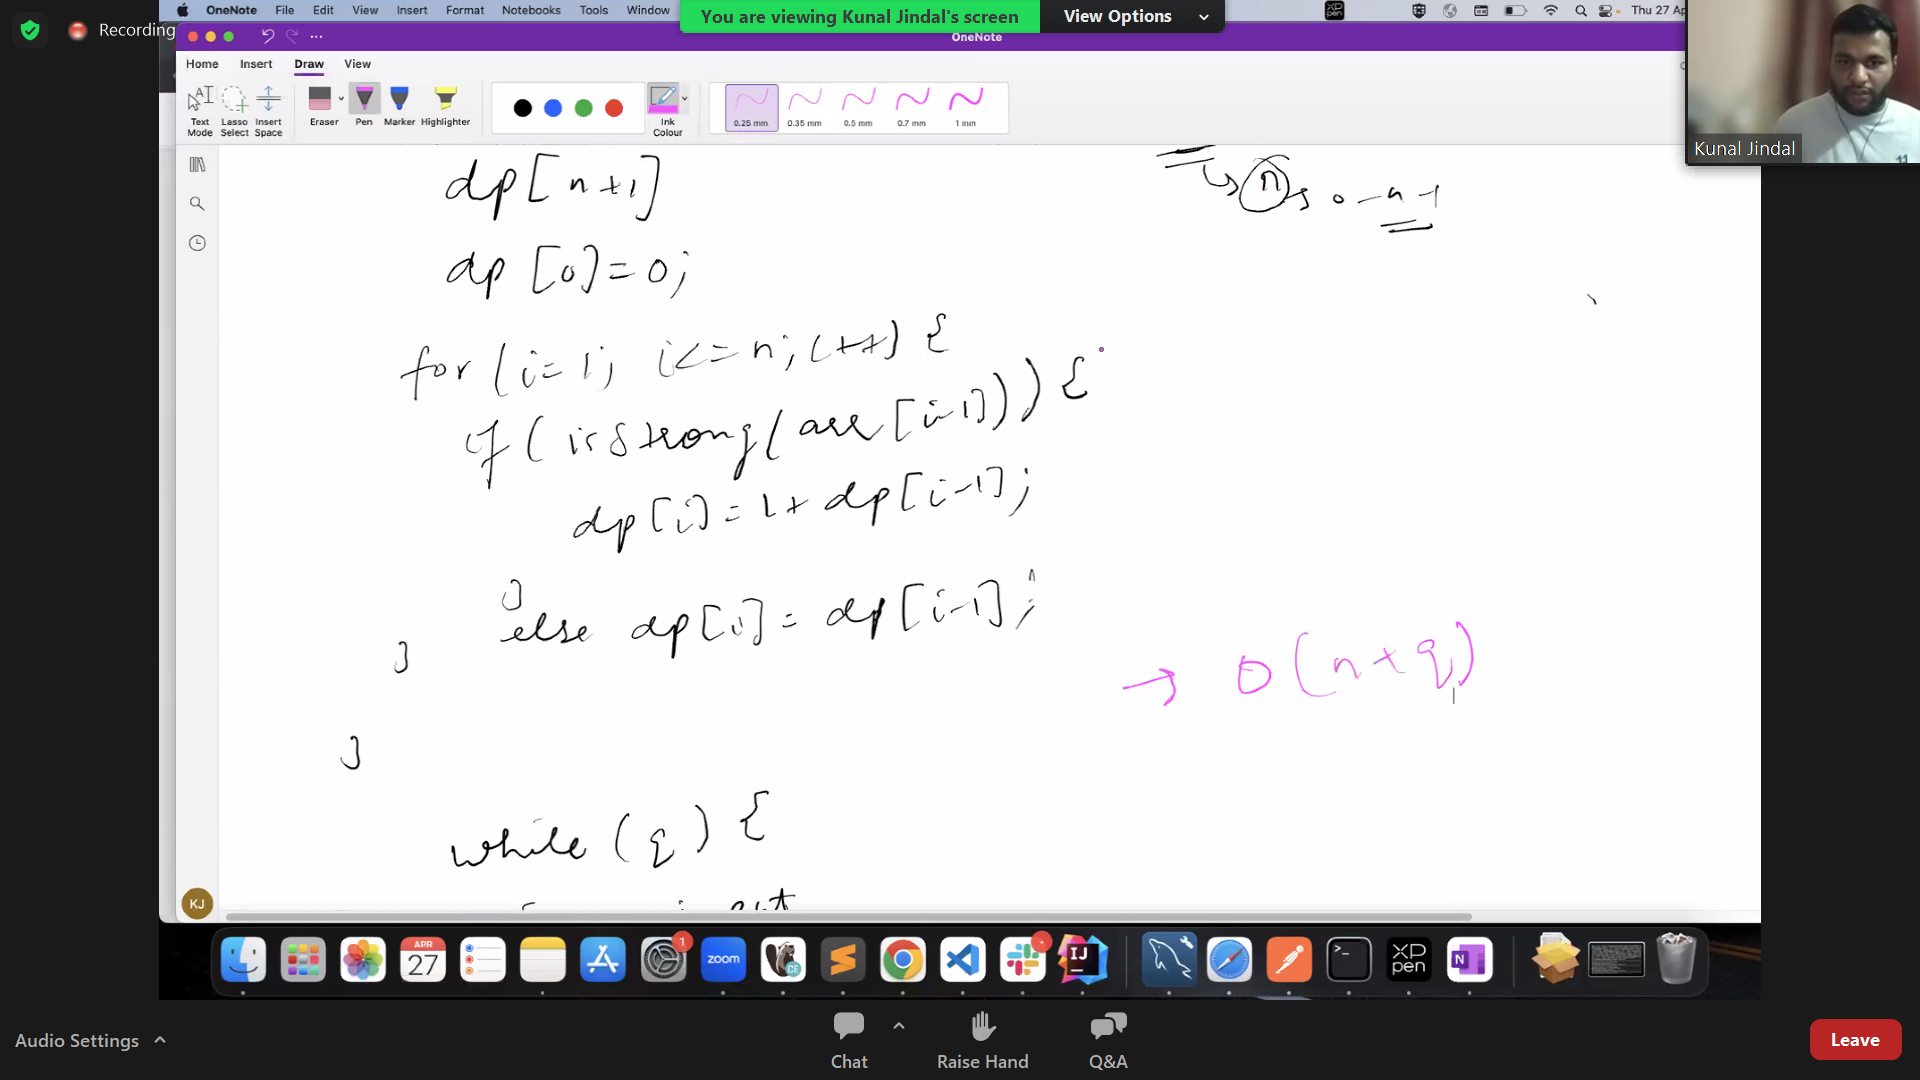 OneNote File Edit View Insert Format Notebooks Tools Window
You are viewing Kunal Jindal's screen View Options
Thu 27 Ap
Recording
OneNote
Home Insert Draw View
Text Mode
Lasso Select
Insert Space
Eraser
Pen
Marker
Highlighter
Ink Colour
0.25 mm
0.35 mm
0.5 mm
0.7 mm
1 mm
Kunal Jindal
dp[n+1]
n → 0-n-1
dp[0]=0;
for(i=1; i<=n; i++) {
if(isStrong(arr[i-1])) {
dp[i]=1+dp[i-1];
}
else dp[i]=dp[i-1];
}
→ O(n+q)
}
while(q) {
KJ
APR
27
1
zoom
CE
IJ
XP
pen
N
Audio Settings
Chat
Raise Hand
Q&A
Leave